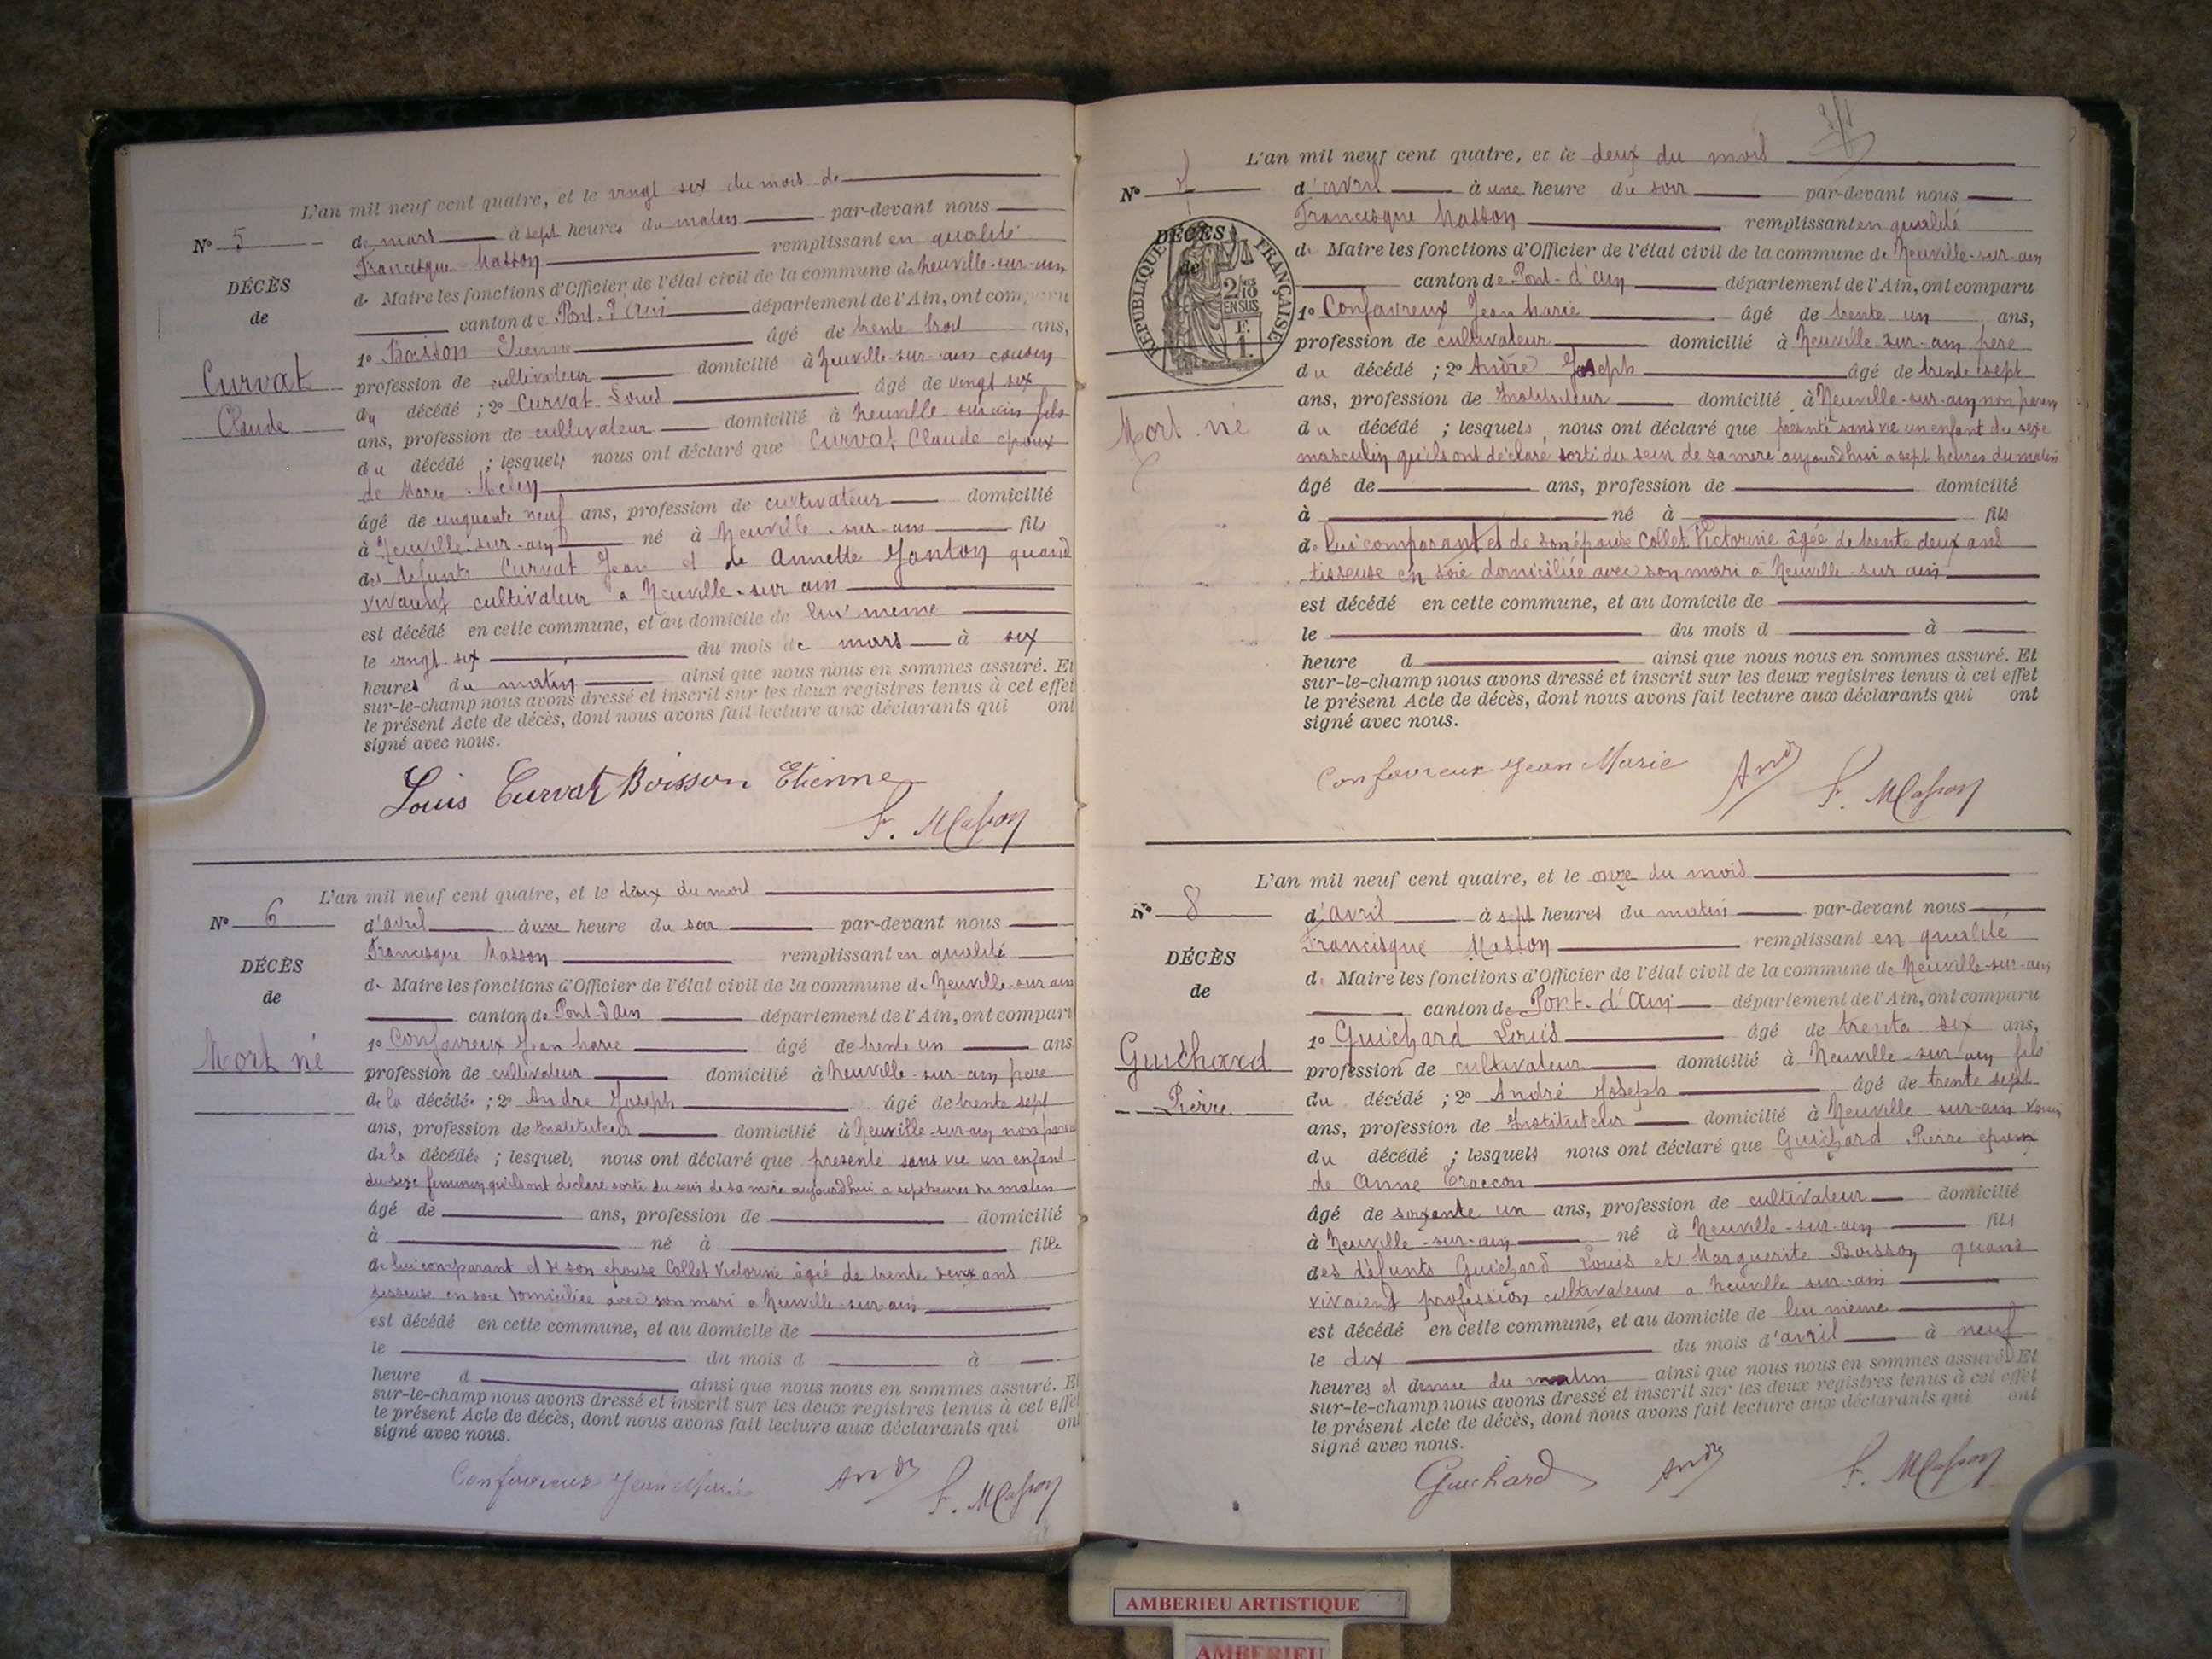 L'an mil neuf cent quatre, et le vingt six du mois de
N° 5
de mars à sept heures du matin par-devant nous
Francisque Masson remplissant en qualité
DÉCÈS
de
de Maire les fonctions d'Officier de l'état civil de la commune de Neuville-sur-ain
canton de Pont-d'Ain département de l'Ain, ont comparu
1° Boisson Etienne âgé de trente trois ans,
Curvat
Claude
profession de cultivateur domicilié à Neuville-sur-ain cousin
du décédé ; 2° Curvat Louis âgé de vingt six
ans, profession de cultivateur domicilié à Neuville-sur-ain fils
du décédé ; lesquels nous ont déclaré que Curvat Claude époux
de Marie
âgé de cinquante neuf ans, profession de cultivateur domicilié
à Neuville-sur-ain né à Neuville-sur-ain fils
des défunts Curvat Jean et de Annette Janton quand
vivaient cultivateur a Neuville-sur ain
est décédé en cette commune, et au domicile de lui meme
le vingt six du mois de mars à six
heures du matin ainsi que nous nous en sommes assuré. Et
sur-le-champ nous avons dressé et inscrit sur les deux registres tenus à cet effet
le présent Acte de décès, dont nous avons fait lecture aux déclarants qui ont
signé avec nous.
Louis Curvat Boisson Etienne
F. Masson
L'an mil neuf cent quatre, et le deux du mois
N° 6
d'avril à une heure du soir par-devant nous
Francisque Masson remplissant en qualité
DÉCÈS
de
de Maire les fonctions d'Officier de l'état civil de la commune de Neuville-sur ain
canton de Pont-d'Ain département de l'Ain, ont comparu
1° Confavreux Jean Marie âgé de trente un ans
Mort né
profession de cultivateur domicilié à Neuville-sur-ain père
de la décédée ; 2° André Joseph âgé de trente sept
ans, profession de Instituteur domicilié à Neuville-sur-ain non parent
de la décédée ; lesquels nous ont déclaré que présenté sans vie un enfant
du sexe feminin qu'ils ont déclaré sorti du sein de sa mère aujourd'hui a sept heures du matin
âgé de ans, profession de domicilié
à né à fille
de lui comparant et de son epouse Collet Victorine âgée de trente deux ans
tisseuse en soie domiciliée avec son mari a Neuville-sur-ain
est décédé en cette commune, et au domicile de
le du mois d à
heure d ainsi que nous nous en sommes assuré. Et
sur-le-champ nous avons dressé et inscrit sur les deux registres tenus à cet effet
le présent Acte de décès, dont nous avons fait lecture aux déclarants qui ont
signé avec nous.
Confavreux Jean Marie André F. Masson
L'an mil neuf cent quatre, et le deux du mois
N° 7
d'avril à une heure du soir par-devant nous
Francisque Masson remplissant en qualité
DÉCÈS
de
RÉPUBLIQUE FRANÇAISE
2/10 EN SUS
F. 1.
de Maire les fonctions d'Officier de l'état civil de la commune de Neuville-sur-ain
canton de Pont-d'ain département de l'Ain, ont comparu
1° Confavreux Jean Marie âgé de trente un ans,
profession de cultivateur domicilié à Neuville-sur-ain père
du décédé ; 2° André Joseph âgé de trente sept
ans, profession de Instituteur domicilié à Neuville-sur-ain non parent
Mort né
du décédé ; lesquels nous ont déclaré que présenté sans vie un enfant du sexe
masculin qu'ils ont déclaré sorti du sein de sa mère aujourd'hui a sept heures du matin
âgé de ans, profession de domicilié
à né à fils
de lui comparant et de son épouse Collet Victorine âgée de trente deux ans
tisseuse en soie domiciliée avec son mari à Neuville-sur ain
est décédé en cette commune, et au domicile de
le du mois d à
heure d ainsi que nous nous en sommes assuré. Et
sur-le-champ nous avons dressé et inscrit sur les deux registres tenus à cet effet
le présent Acte de décès, dont nous avons fait lecture aux déclarants qui ont
signé avec nous.
Confavreux Jean Marie André F. Masson
L'an mil neuf cent quatre, et le onze du mois
N° 8
d'avril à sept heures du matin par-devant nous
Francisque Masson remplissant en qualité
DÉCÈS
de
de Maire les fonctions d'Officier de l'état civil de la commune de Neuville-sur-ain
canton de Pont-d'Ain département de l'Ain, ont comparu
1° Guichard Louis âgé de trente six ans,
Guichard
Pierre
profession de cultivateur domicilié à Neuville-sur-ain fils
du décédé ; 2° André Joseph âgé de trente sept
ans, profession de Instituteur domicilié à Neuville-sur-ain voisin
du décédé ; lesquels nous ont déclaré que Guichard Pierre epoux
de Anne Traccon
âgé de soixante un ans, profession de cultivateur domicilié
à Neuville-sur-ain né à Neuville-sur-ain fils
des défunts Guichard Louis et Marguerite Boisson quand
vivaient profession cultivateurs a Neuville sur-ain
est décédé en cette commune, et au domicile de lui même
le dix du mois d'avril à neuf
heures et demie du matin ainsi que nous nous en sommes assuré. Et
sur-le-champ nous avons dressé et inscrit sur les deux registres tenus à cet effet
le présent Acte de décès, dont nous avons fait lecture aux déclarants qui ont
signé avec nous.
Guichard André F. Masson
AMBERIEU ARTISTIQUE
AMBERIEU